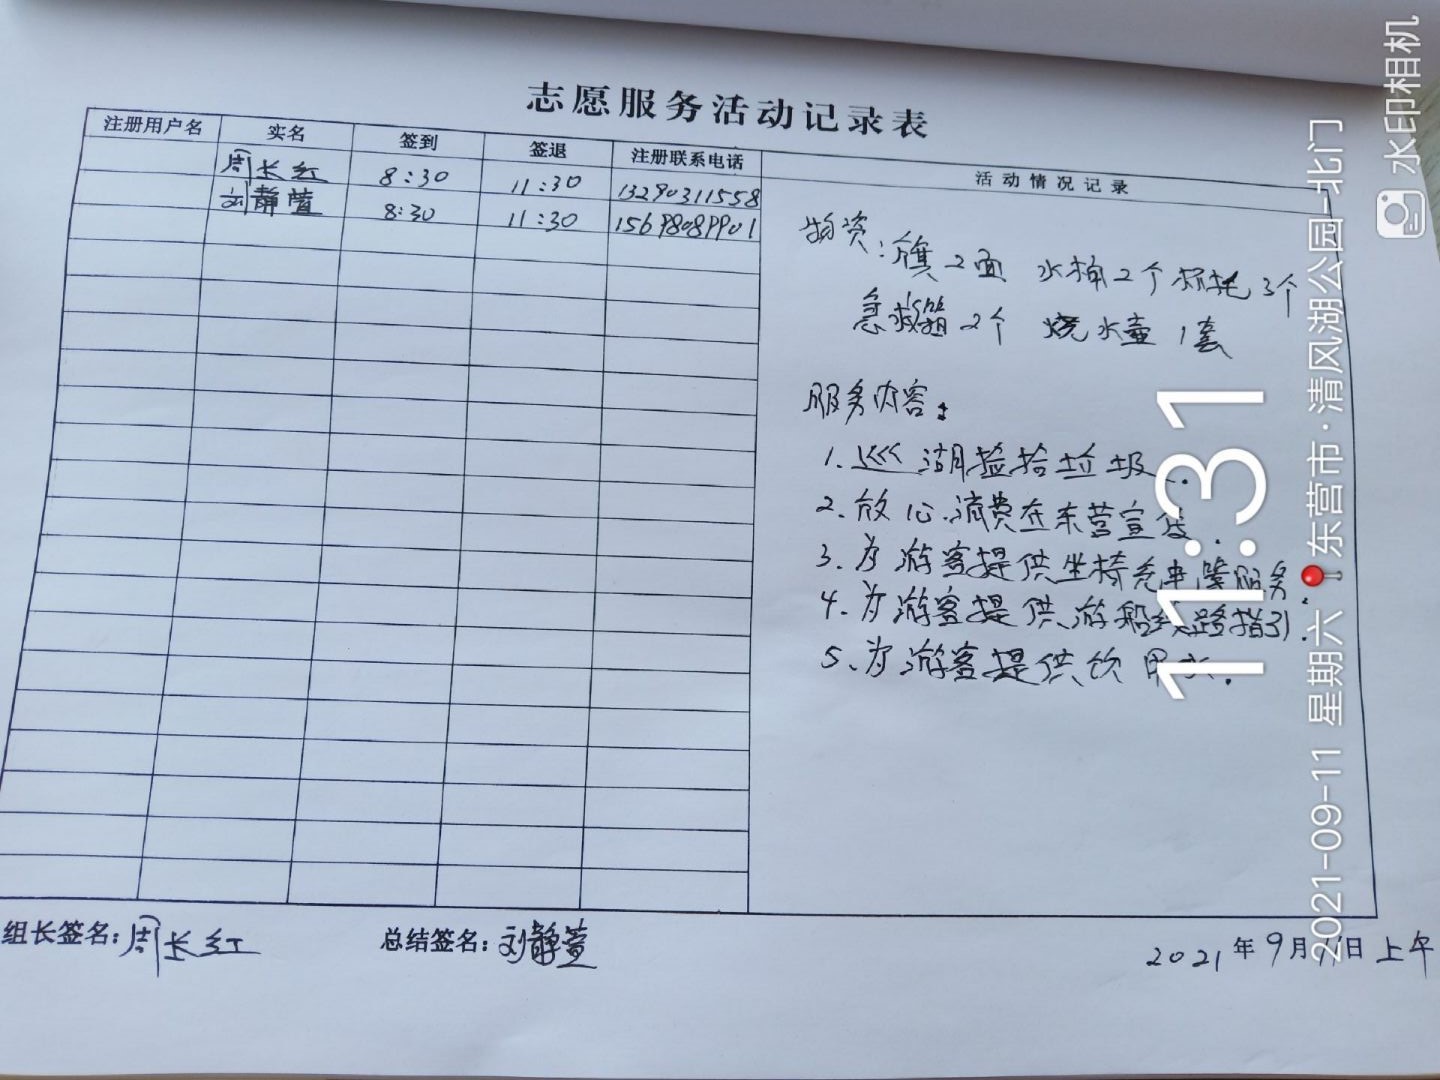 志愿服务活动记录表
注册用户名 实名 签到 签退 注册联系电话 活动情况记录
周长红 8:30 11:30 13290311558
刘静萱 8:30 11:30 15698089901
物资:旗2面 水桶2个 杯托3个
急救箱2个 烧水壶1套
服务内容:
1.巡湖捡拾垃圾.
2.放心消费在东营宣传.
3.为游客提供坐椅充电等服务.
4.为游客提供游船线路指引.
5、为游客提供饮用水.
组长签名:周长红 总结签名:刘静萱
2021年9月11日上午
11:31
2021-09-11 星期六 东营市·清风湖公园-北门
水印相机